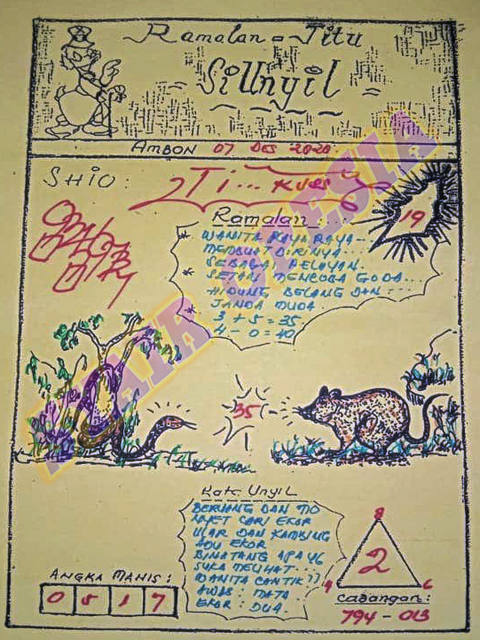 Ramalan = Jitu
Si Unyil
AMBON 07 DES 2020
SHIO:
19
Ramalan
WANITA KAYA RAYA
MEMBUAT DIRINYA
SEBAGAI PELAYAN
SETAN MENCOBA GODA...
HIDUNG BELANG DAN...
JANDA MUDA
3 + 5 = 35
4 - 0 = 40
35
Kata Unyil
BERUANG DAN
CARI EKOR
ULAR DAN KAMBING
ADU EKOR
BINATANG APA YG
SUKA MELIHAT...
WANITA CANTIK??
AWAS: MATA
EKOR: DUA
ANGKA MANIS:
0 5 1 7
8
2
9 6
Cadangan:
794 - 013